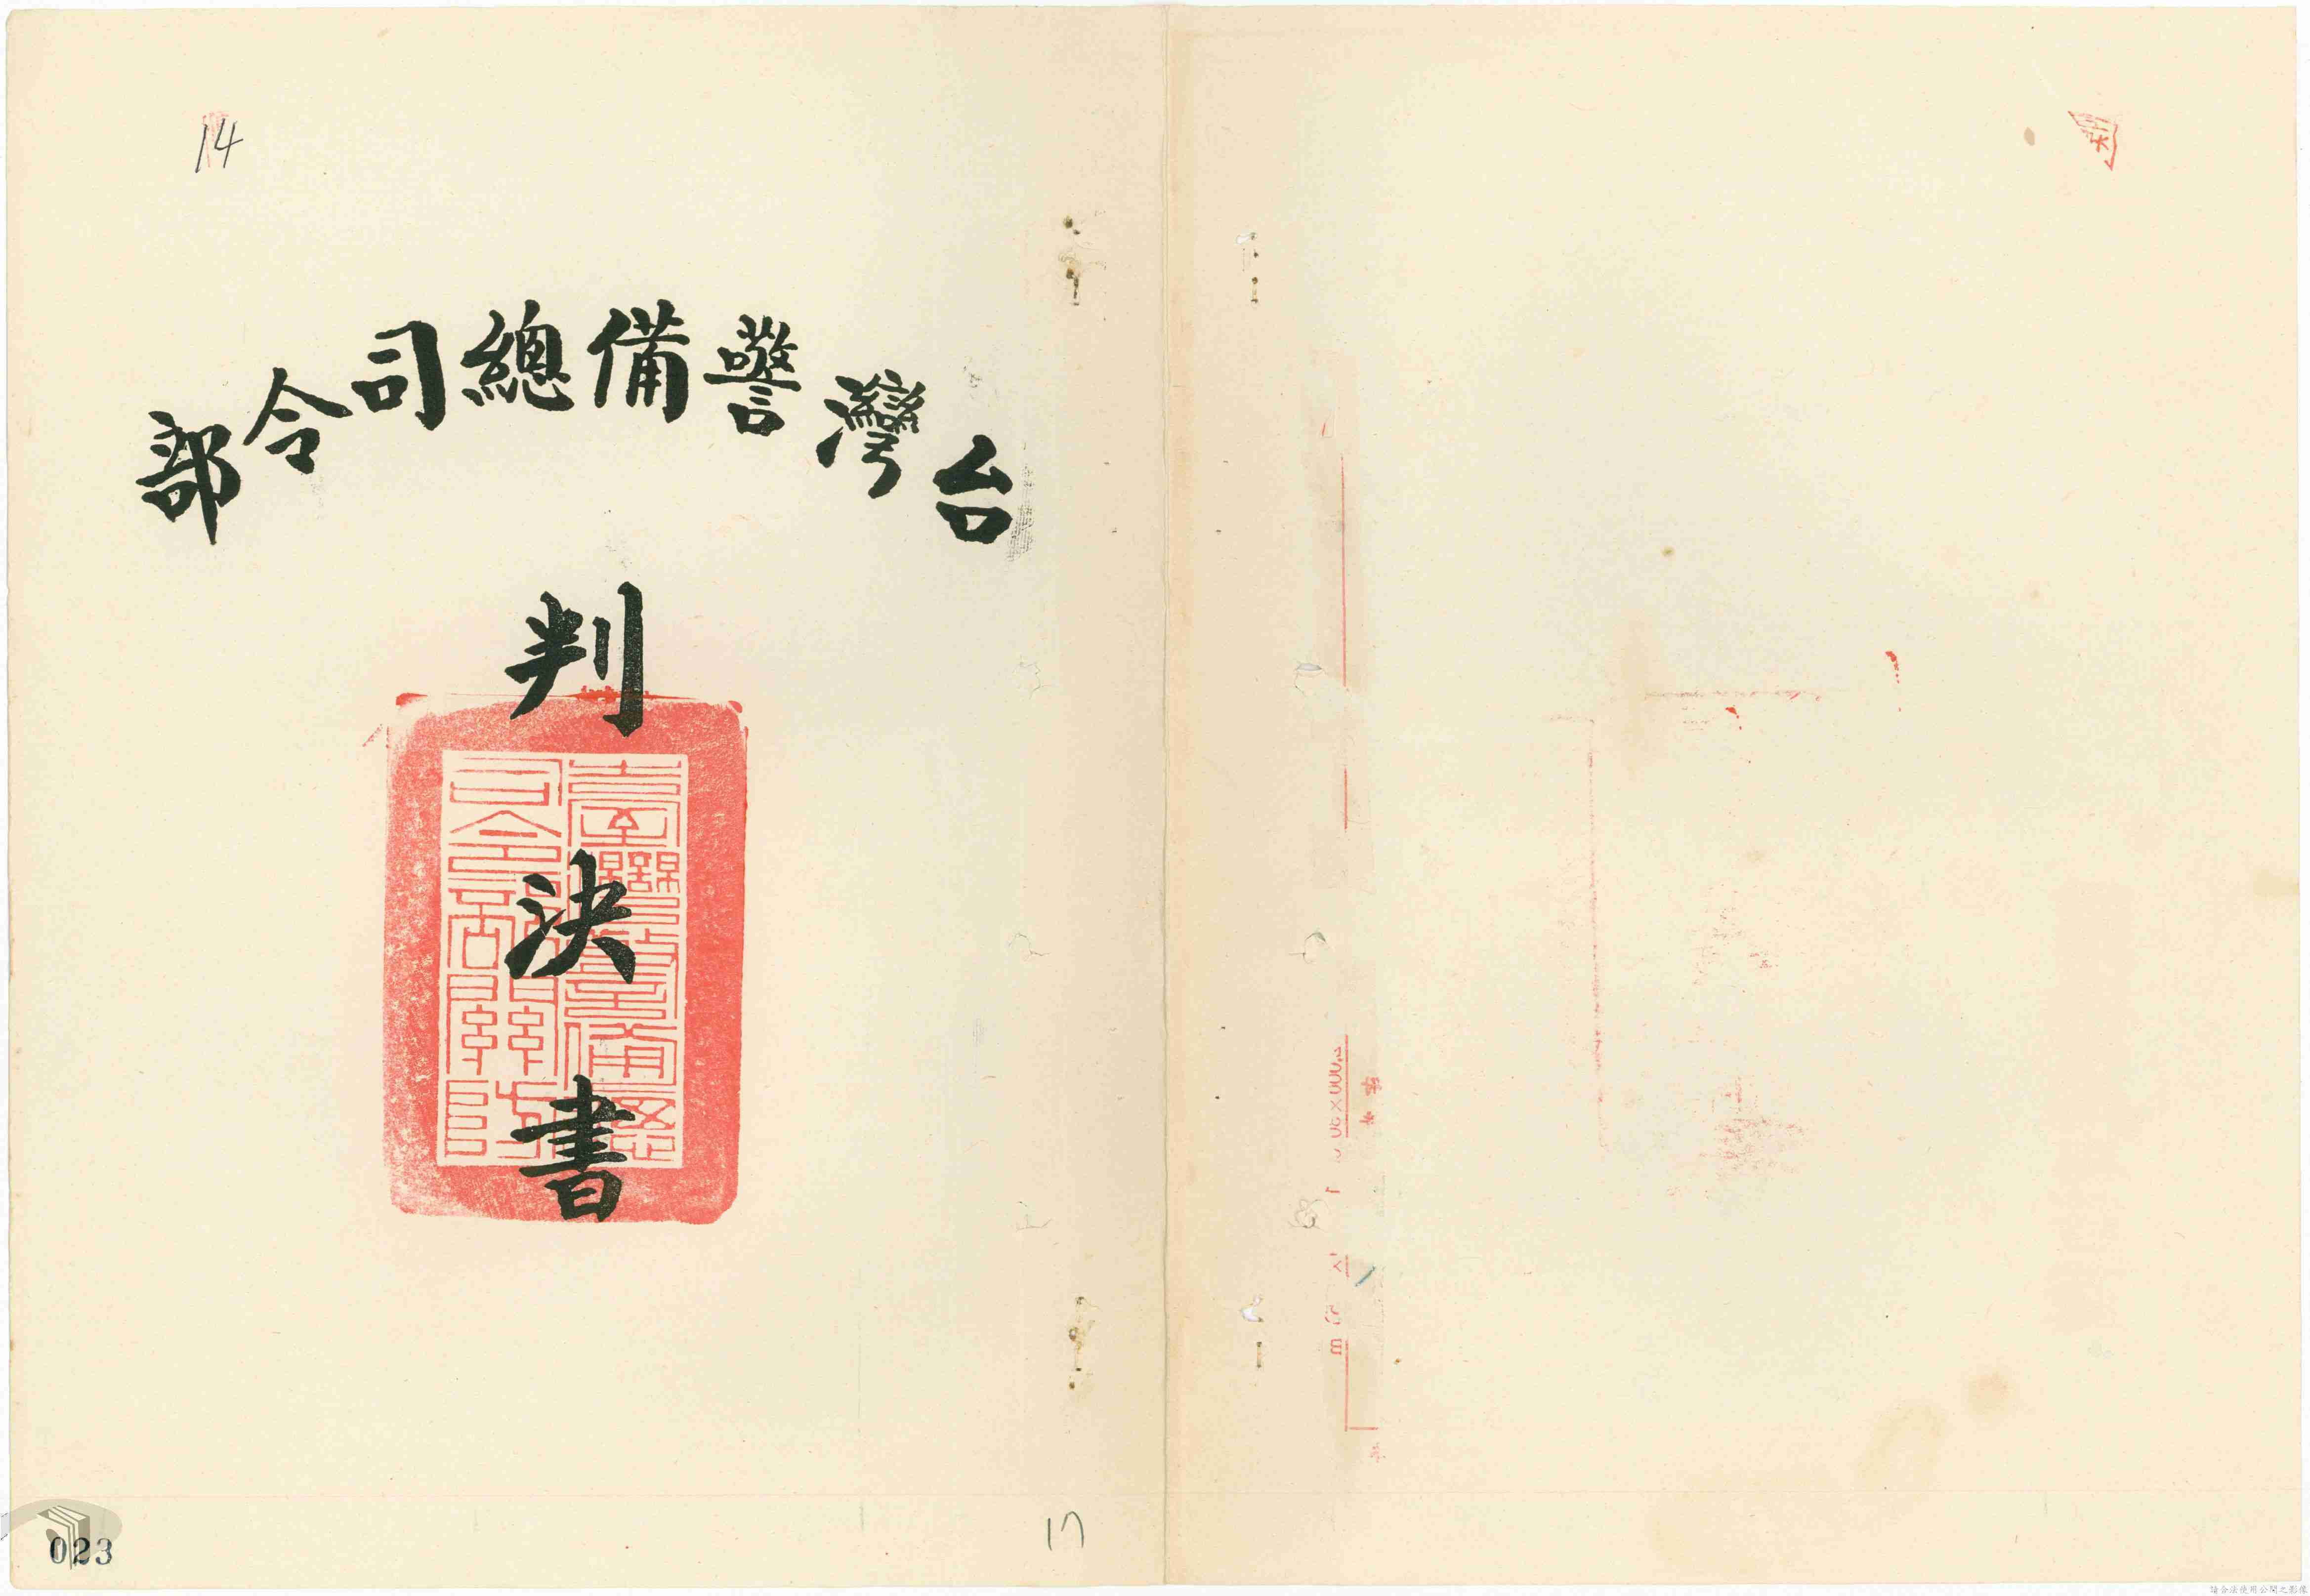 14
台灣警備總司令部
判決書
臺灣警備總司令部關防
023
17
請合法使用公開之影像